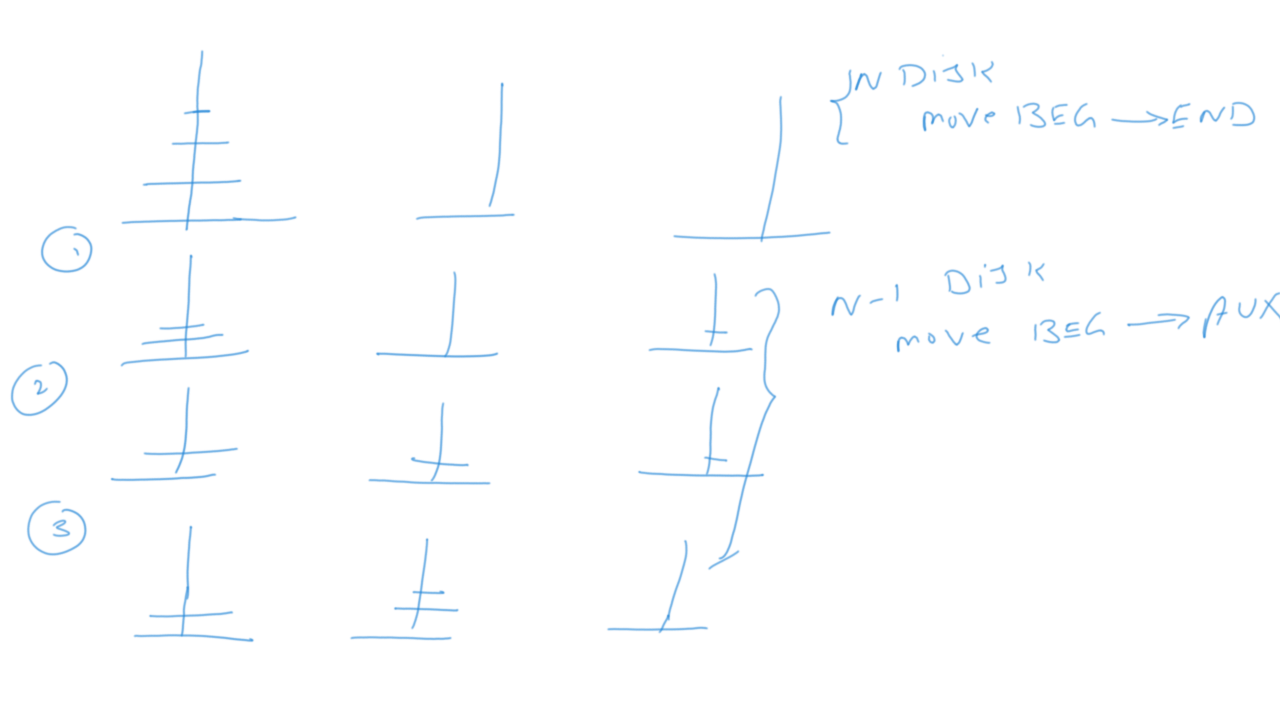 N DISK
move BEG → END
1
N-1 DISK
move BEG → AUX
2
3